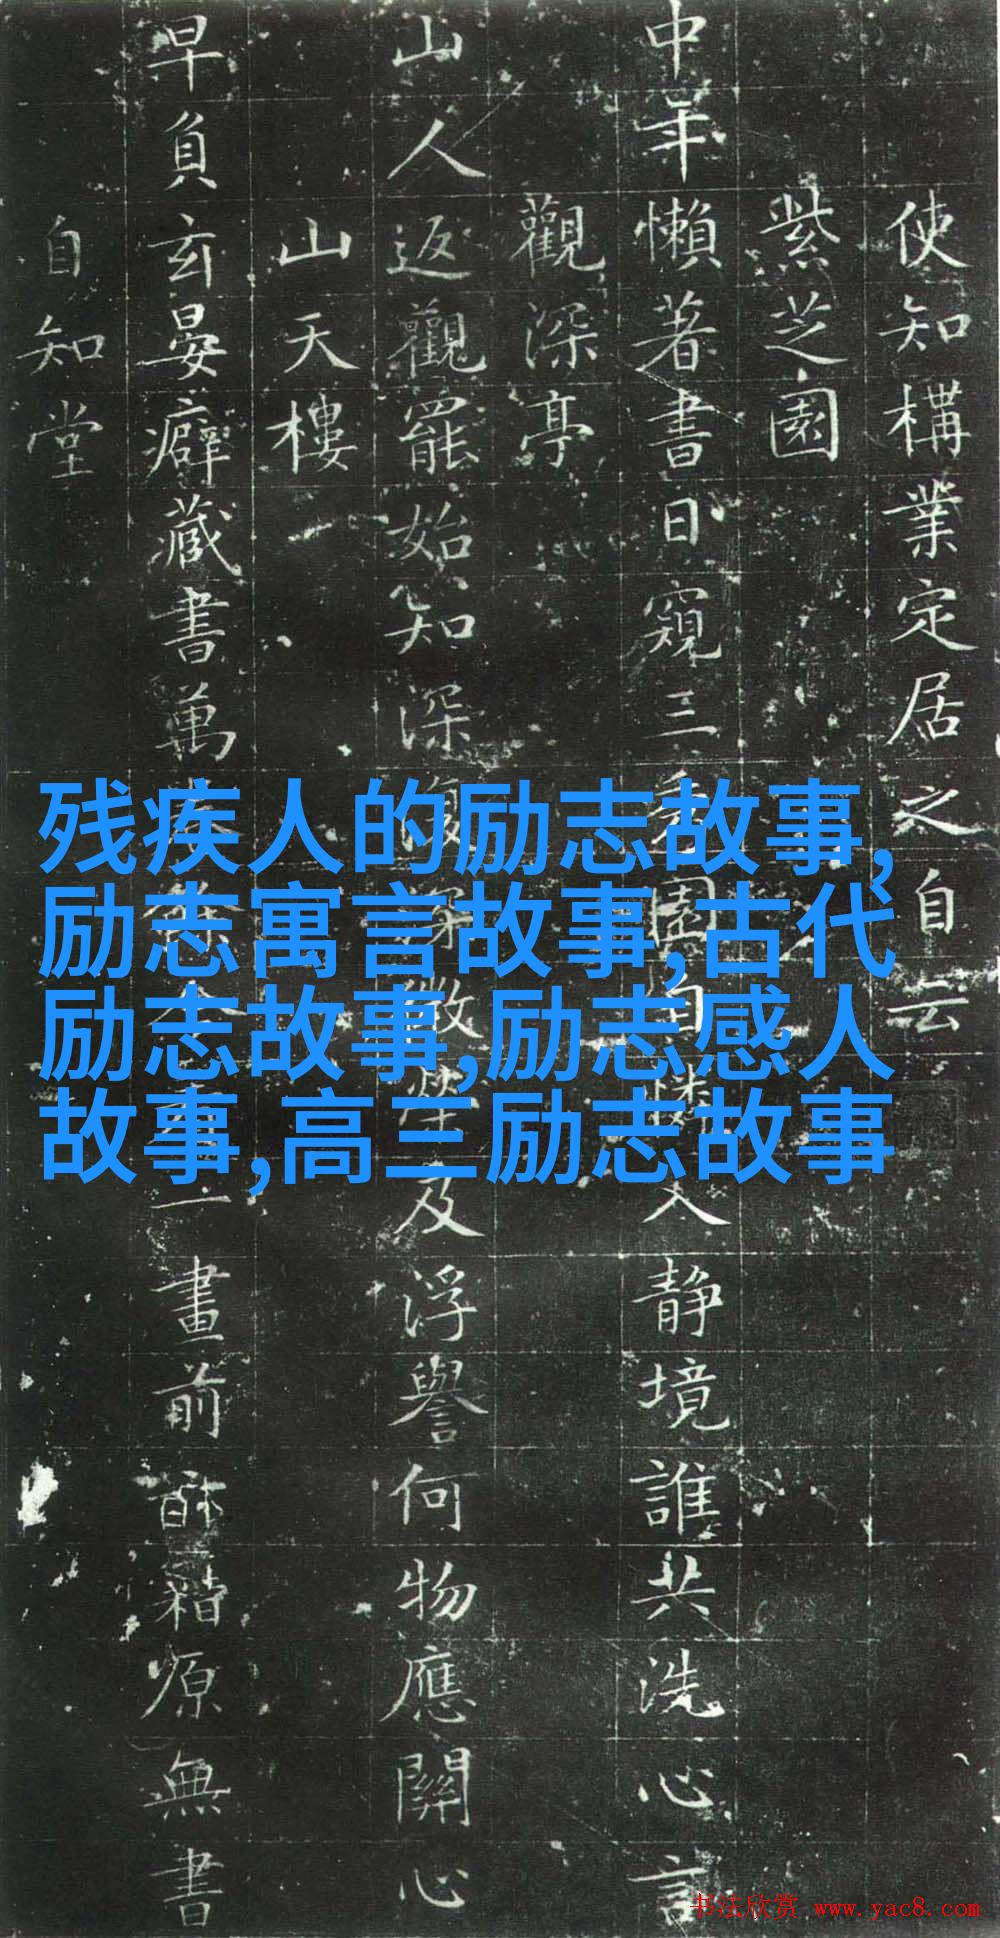 使知構業定居之自云
紫芝園
中年懶著書日窺三園自入靜境誰共洗心言
觀深亭
山人返觀罷始知深復深微及浮譽何物應關心
山天樓
早負玄晏癖藏書萬畫前籍原無書
自知堂
残疾人的励志故事,
励志寓言故事,古代
励志故事,励志感人
故事,高三励志故事
书法欣赏 www.yac8.com